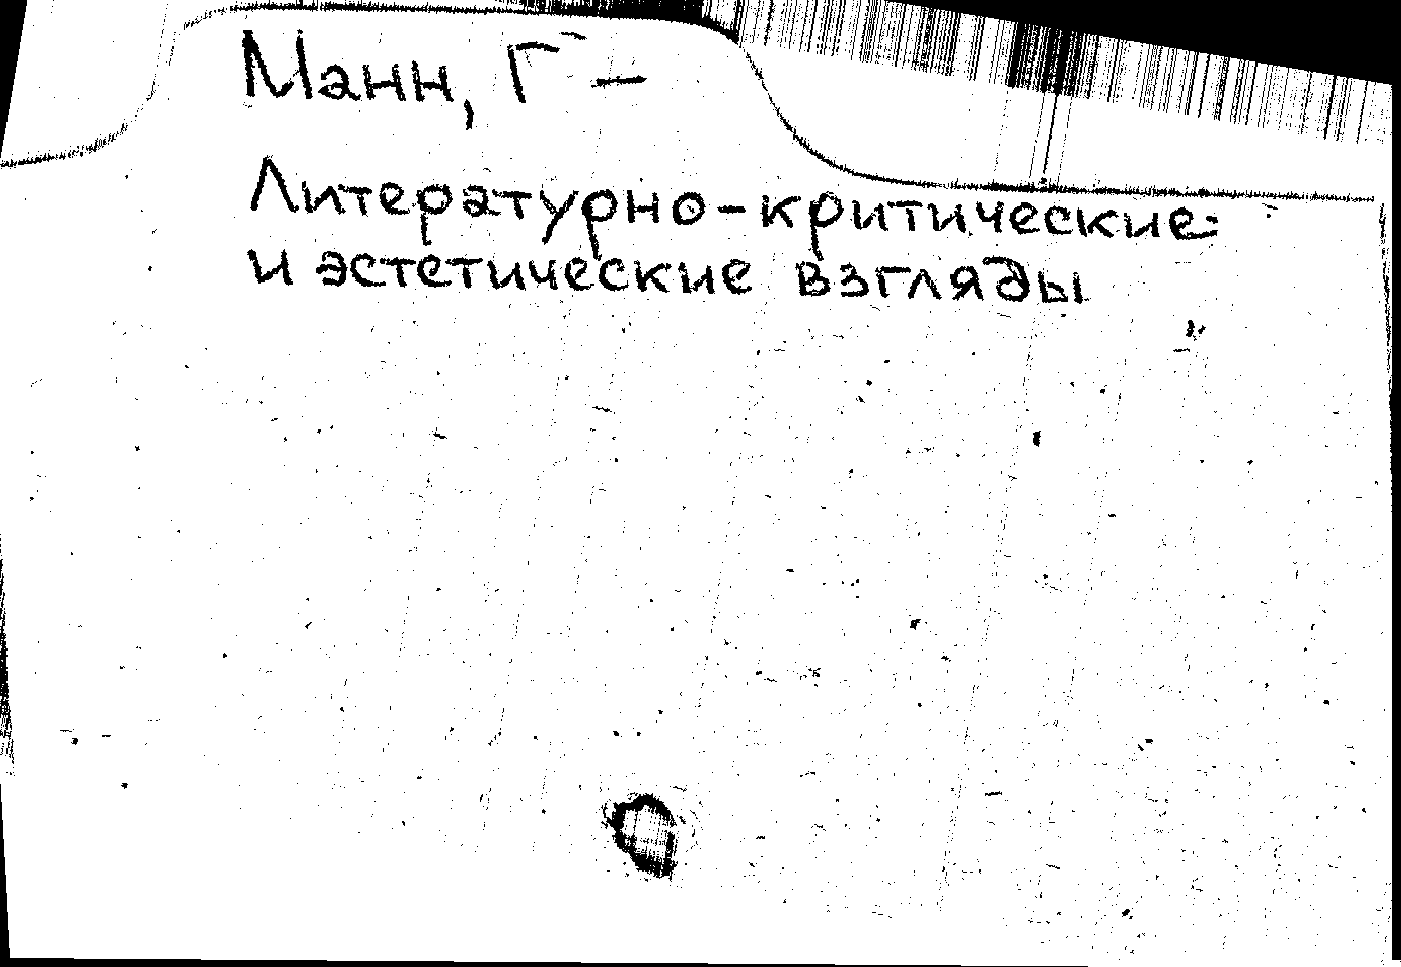 Манн, Г —
Литературно-критические
и эстетические взгляды